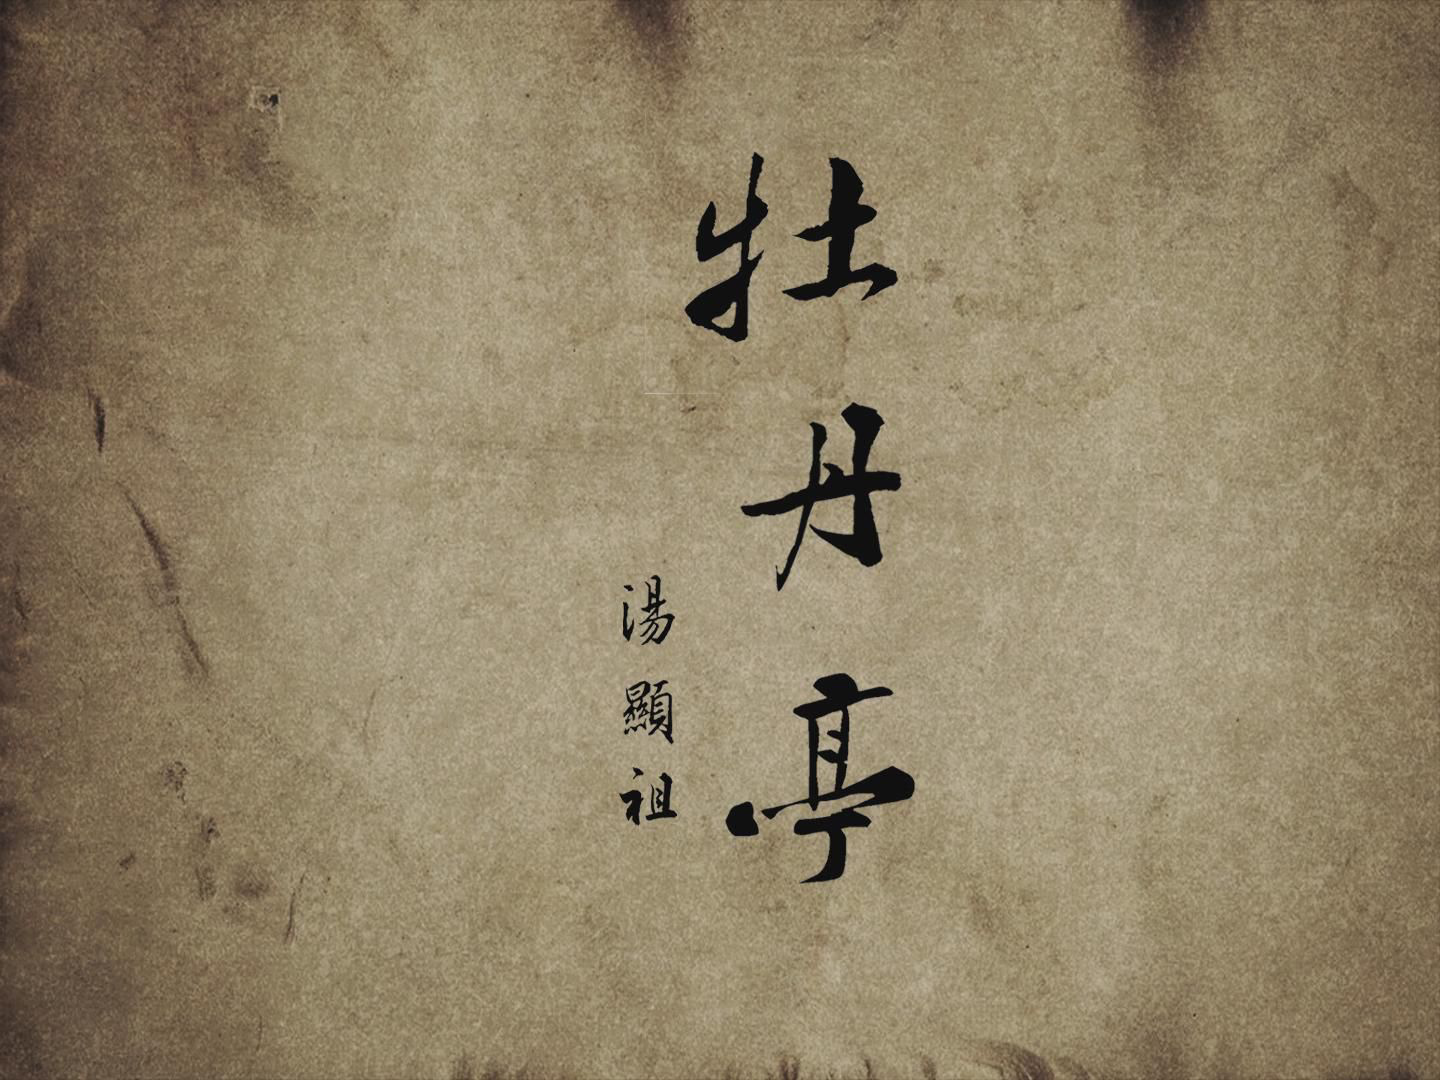 牡丹亭
湯顯祖